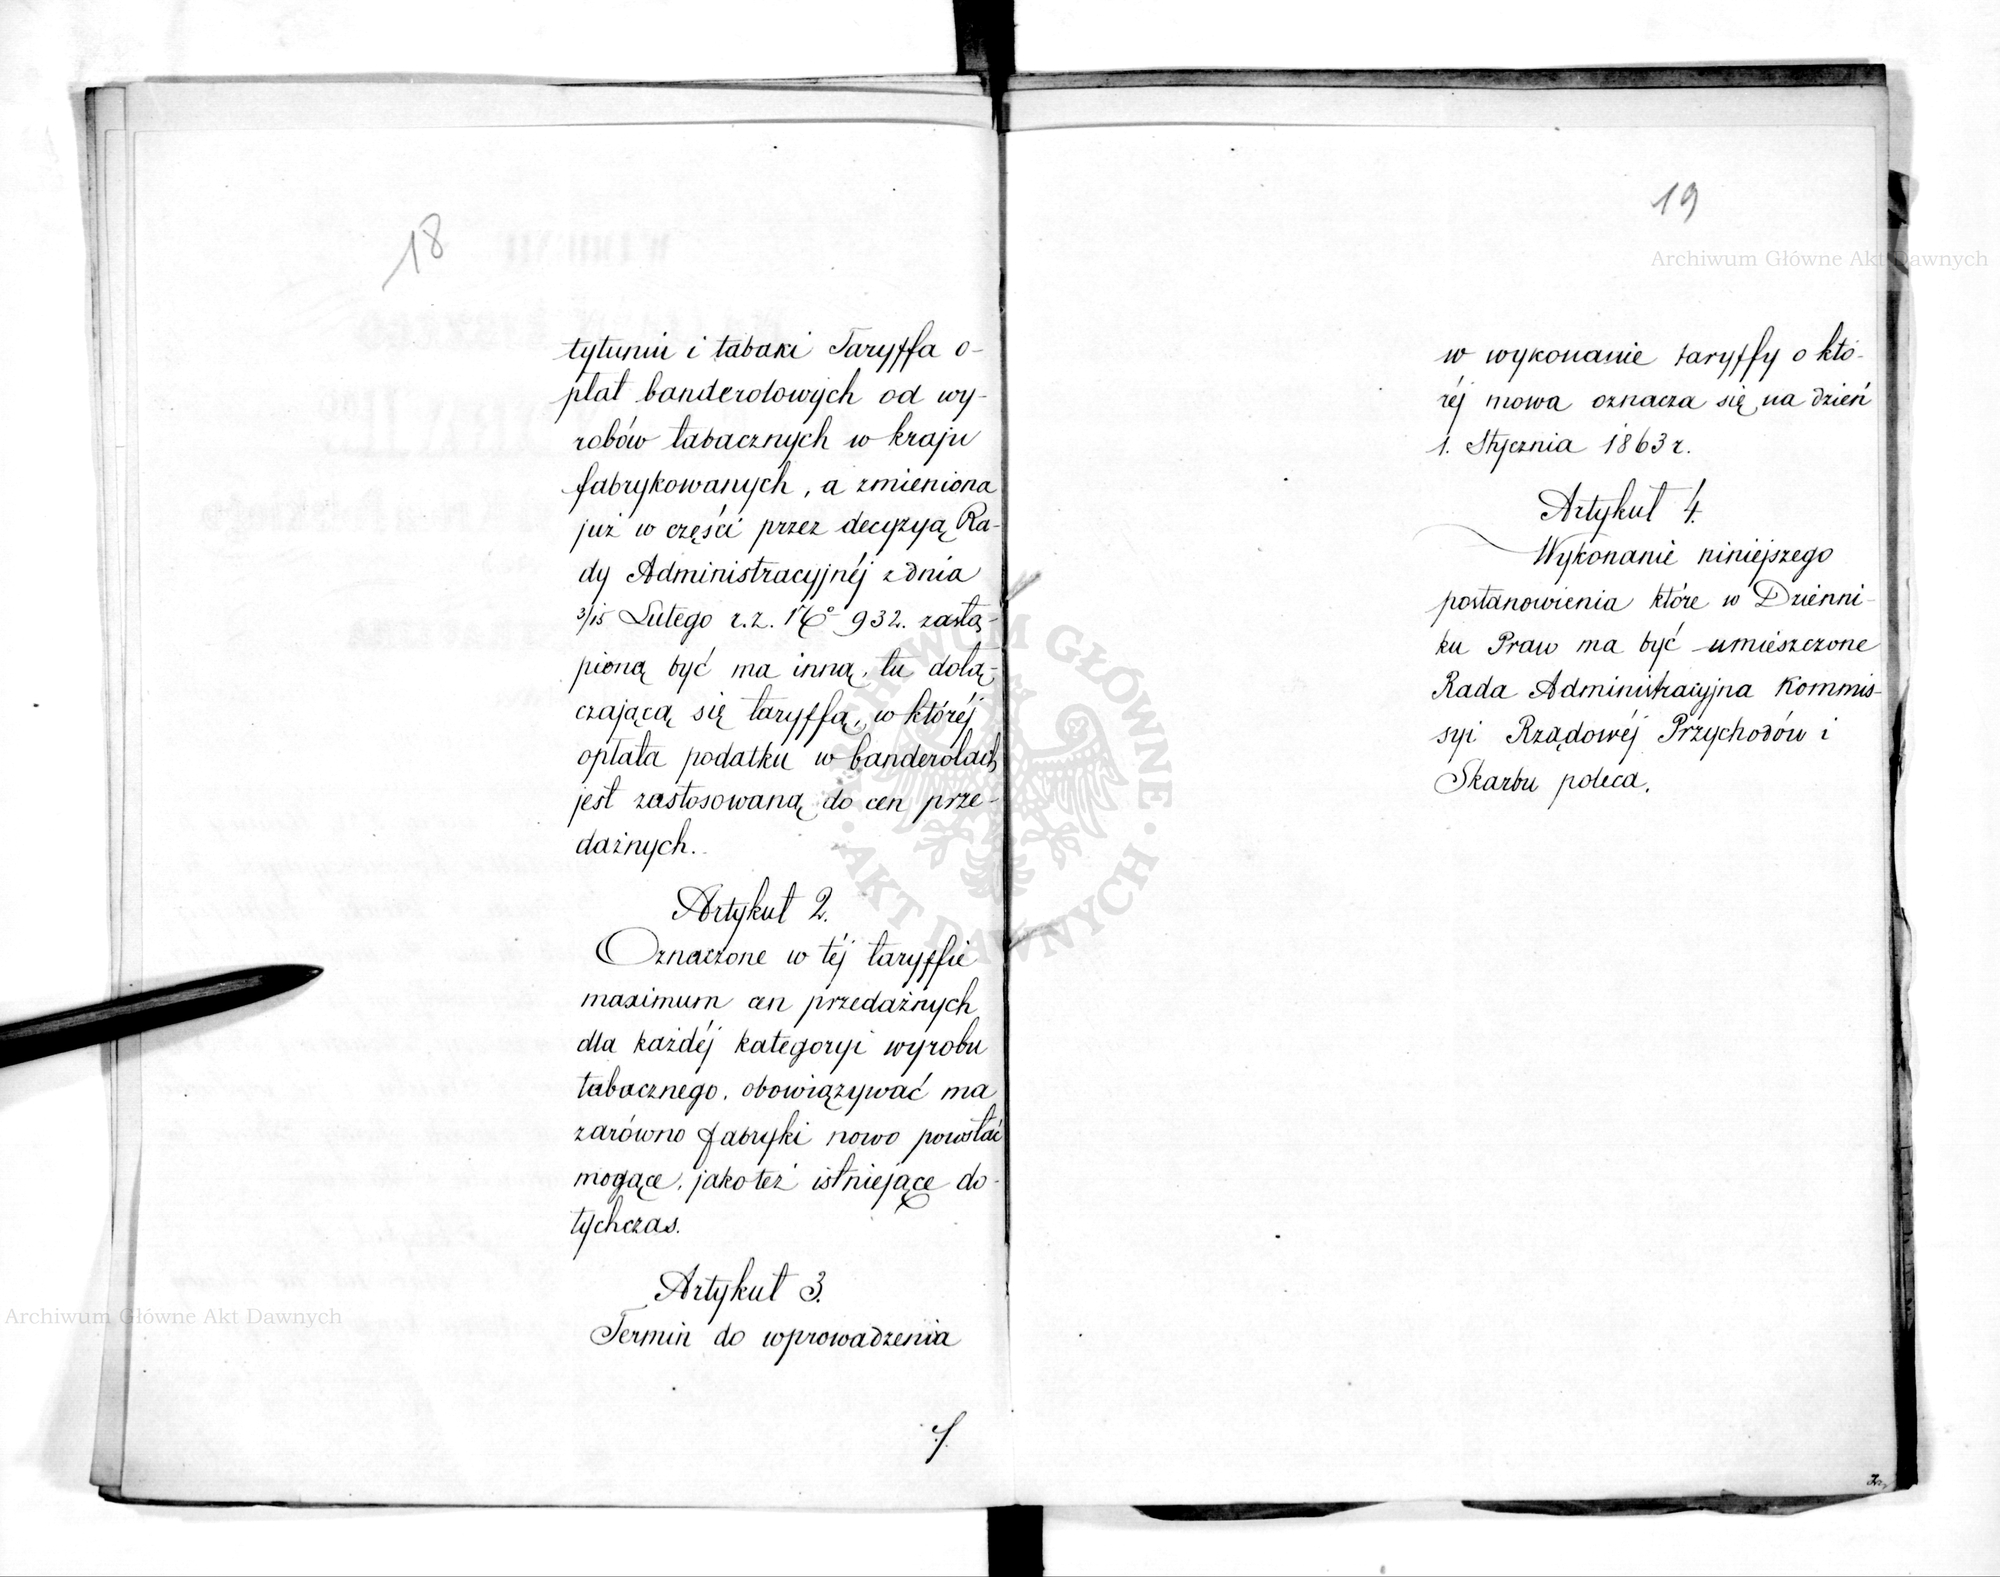 18
tytuniu i tabaki Taryffa o-
płat banderolowych od wy-
robów tabacznych w kraju
fabrykowanych, a zmieniona
już w części przez decyzyą Ra-
dy Administracyjnéj z dnia
3/15 Lutego r.z. No 932. zastą-
pioną być ma inną, tu dołą-
czającą się taryffą, w któréj
opłata podatku w banderolach
jest zastosowaną do cen prze-
dażnych.
Artykuł 2.
Oznaczone w téj taryffie
maximum cen przedażnych
dla każdéj kategoryi wyrobu
tabacznego, obowiązywać ma
zarówno fabryki nowo powstać
mogące, jakoteż istniejące do-
tychczas.
Artykuł 3.
Termin do wprowadzenia
./.
19
w wykonanie taryffy o któ-
réj mowa oznacza się na dzień
1. Stycznia 1863 r.
Artykuł 4.
Wykonanie niniejszego
postanowienia które w Dzienni-
ku Praw ma być umieszczone
Rada Administracyjna Kommis-
syi Rządowéj Przychodów i
Skarbu poleca.
Archiwum Główne Akt Dawnych
Archiwum Główne Akt Dawnych
ARCHIWUM GŁÓWNE
AKT DAWNYCH